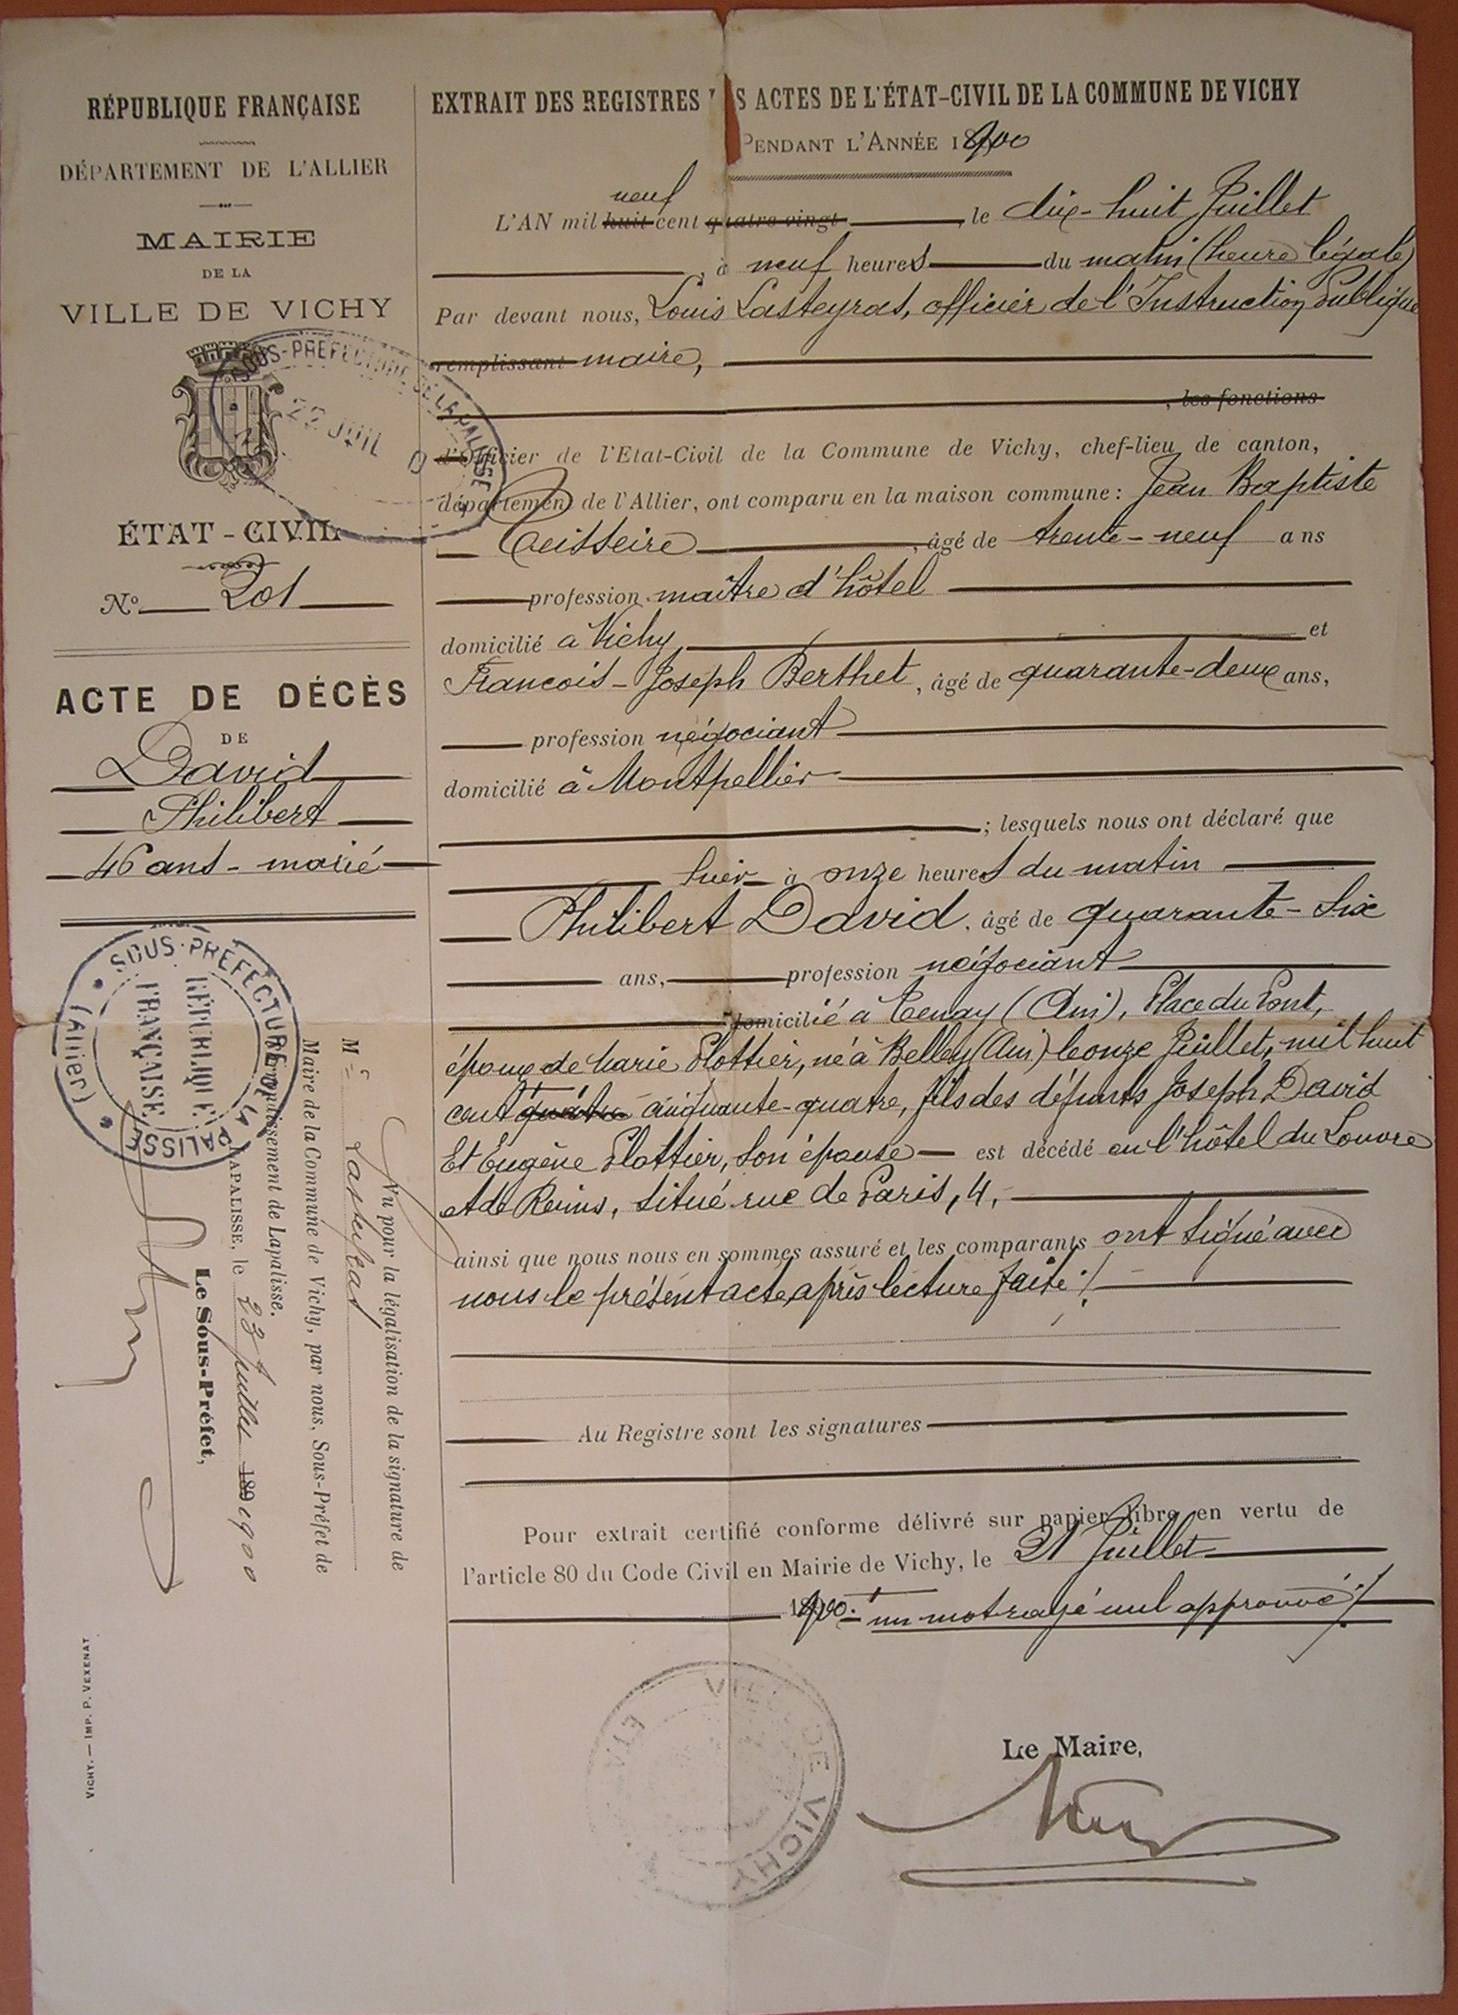 RÉPUBLIQUE FRANÇAISE
DÉPARTEMENT DE L'ALLIER
MAIRIE
DE LA
VILLE DE VICHY
SOUS-PRÉFECTURE DE LAPALISSE
22 JUIL
ÉTAT-CIVIL
N° 201
ACTE DE DÉCÈS
DE
David
Philibert
46 ans - marié
SOUS-PRÉFECTURE DE LAPALISSE
(Allier)
RÉPUBLIQUE
FRANÇAISE
Vu pour la légalisation de la signature de
M.r Lasteyras
Maire de la Commune de Vichy, par nous, Sous-Préfet de
l'arrondissement de Lapalisse.
LAPALISSE, le 23 Juillet 189 1900
Le Sous-Préfet,
VICHY. — IMP. P. VEXENAT
EXTRAIT DES REGISTRES DES ACTES DE L'ÉTAT-CIVIL DE LA COMMUNE DE VICHY
PENDANT L'ANNÉE 1900
neuf
L'AN mil huit cent quatre-vingt, le dix-huit Juillet
, à neuf heures du matin (heure légale)
Par devant nous, Louis Lasteyras, officier de l'Instruction Publique
remplissant maire,
, les fonctions
d'Officier de l'Etat-Civil de la Commune de Vichy, chef-lieu de canton,
département de l'Allier, ont comparu en la maison commune : Jean Baptiste
Teisseire, âgé de trente-neuf ans
profession maître d'hôtel
domicilié à Vichy et
François-Joseph Berthet, âgé de quarante-deux ans,
profession négociant
domicilié à Montpellier
; lesquels nous ont déclaré que
hier à onze heures du matin
Philibert David, âgé de quarante-six
ans, profession négociant
domicilié à Tenay (Ain), Place du Pont,
époux de Marie Plottier, né à Belley (Ain) le onze Juillet, mil huit
cent quatre cinquante-quatre, fils des défunts Joseph David
Et Eugène Plottier, son épouse — est décédé en l'hôtel du Louvre
et de Reims, situé rue de Paris, 4,
ainsi que nous nous en sommes assuré et les comparants ont signé avec
nous le présent acte après lecture faite ./.
Au Registre sont les signatures
Pour extrait certifié conforme délivré sur papier libre en vertu de
l'article 80 du Code Civil en Mairie de Vichy, le 21 Juillet
1900. un mot rayé nul approuvé ./.
VILLE DE VICHY
Le Maire,